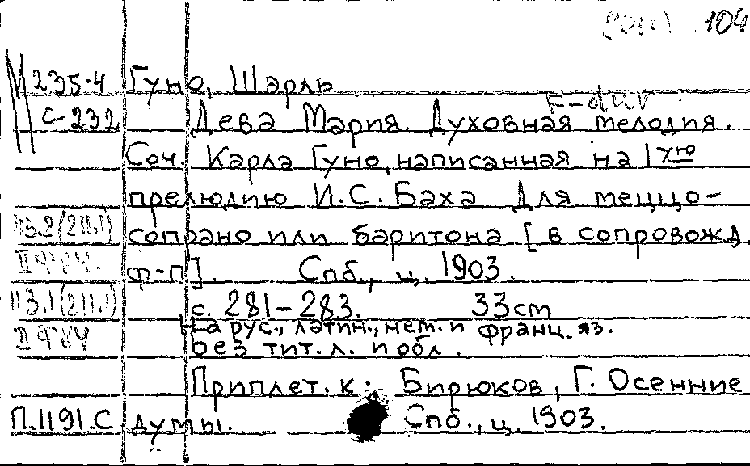 104
М 235-4 Гуно, Шарль
С-232 F-dur
Дева Мария. Духовная мелодия.
Соч. Карла Гуно, написанная на 1ую
прелюдию И.С. Баха. Для меццо-
сопрано или баритона [в сопровожд.
ф-п]. Спб., ц. 1903.
с. 281-283. 33см
На рус., латин., нем. и франц. яз.
Без тит. л. и обл.
Приплет. к: Бирюков, Г. Осенние
П.1191 С думы. Спб., ц. 1903.